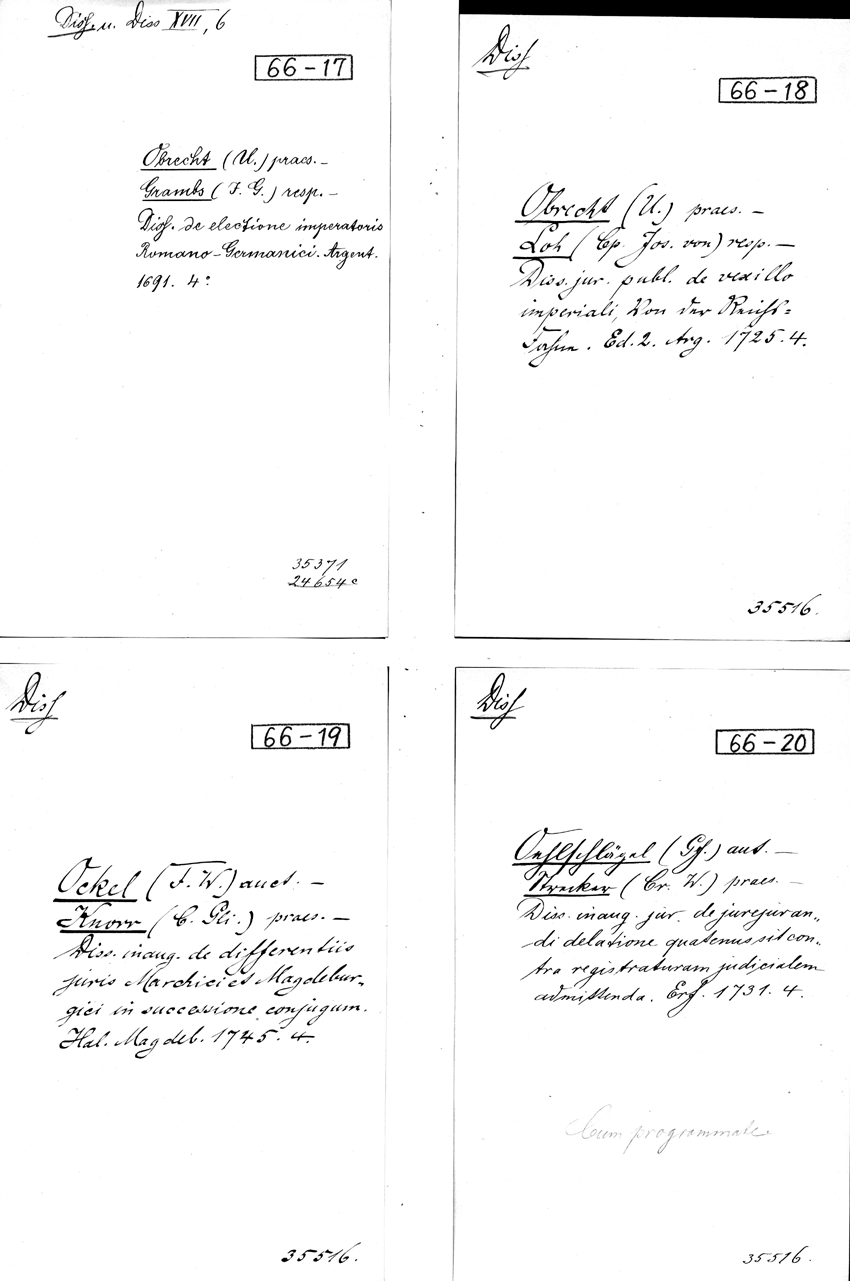 Diss. u. Diss XVII, 6
66-17
Obrecht (U.) praes. –
Grambs (F. G.) resp. –
Diss. de electione imperatoris
Romano-Germanici. Argent.
1691. 4°
35371
24654c
Diss
66-18
Obrecht (U.) praes. –
Loh (Cp. Jos. von) resp. –
Diss. jur. publ. de vexillo
imperiali, Von der Reichs=
Fahne. Ed. 2. Arg. 1725. 4.
35516.
Diss
66-19
Ockel (F. W.) auct. –
Knorr (C. Gli.) praes. –
Diss. inaug. de differentiis
juris Marchici et Magdebur-
gici in successione conjugum.
Hal. Magdeb. 1745. 4.
35516.
Diss
66-20
Oehlschlägel (Gf.) aut. –
Strecker (Cr. W.) praes. –
Diss. inaug. jur. de jurejuran-
di delatione quatenus sit con-
tra registraturam judicialem
admittenda. Erf. 1731. 4.
Cum programmate
35516.